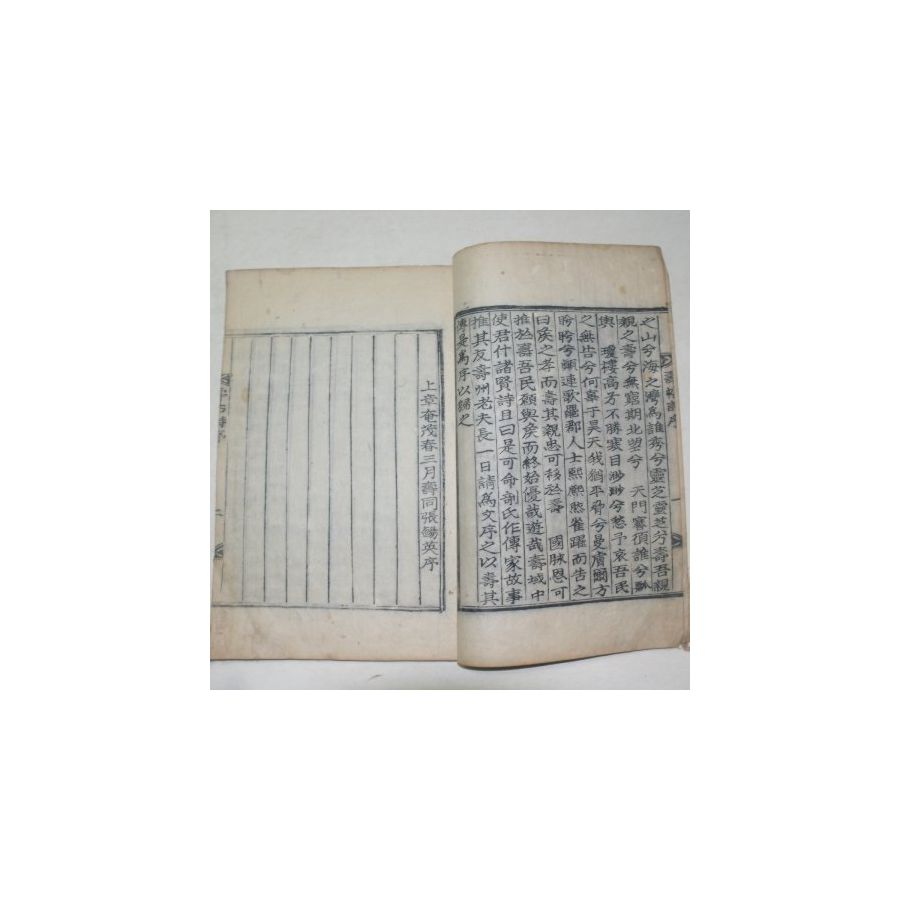 之山兮海之灣爲誰秀兮靈芝靈芝兮壽吾親
親之壽兮無窮期北望兮 天門寋須誰兮
輿 瓊樓高處不勝寒目渺渺兮愁予哀吾民
之無告兮何辜于昊天我猶平脊兮曼膚爾方
盼盼兮顚連歌罷郡人士熙熙然雀躍而告之
曰侯之孝而壽其親忠可移於壽 國脉恩可
推於壽吾民願與侯而終始優哉遊哉壽域中
使君什諸賢詩且曰是可命剞氏作傳家故事
推其友壽州老夫長一日請爲文序之以壽其
傳是爲序以歸之
上章奄茂春三月壽同張錫英序